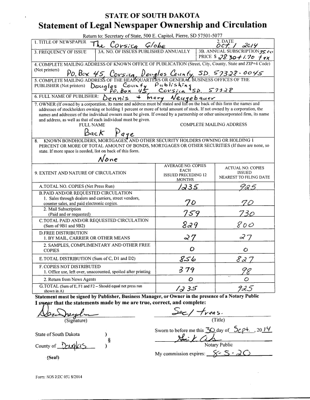 STATE OF SOUTH DAKOTA
Statement of Legal Newspaper Ownership and Circulation
Return to: Secretary of State, 500 E. Capitol, Pierre, SD 57501-5077
1. TITLE OF NEWSPAPER The Corsica Globe
2. DATE Oct 1 2014
3. FREQUENCY OF ISSUE
3A. NO. OF ISSUES PUBLISHED ANNUALLY
3B. ANNUAL SUBSCRIPTION
PRICE $ 28.30 + 1.70 tax
4. COMPLETE MAILING ADDRESS OF KNOWN OFFICE OF PUBLICATION (Street, City, County, State and ZIP+4 Code)
(Not printers) P.O. Box 45 Corsica, Douglas County SD 57328-0045
5. COMPLETE MAILING ADDRESS OF THE HEADQUARTERS OR GENERAL BUSINESS OFFICES OF THE
PUBLISHER (Not printer) Douglas County Publishing
P.O. Box 45 Corsica SD 57328
6. FULL NAME OF PUBLISHER: Dennis + Mary Neugebauer
7. OWNER (If owned by a corporation, its name and address must be stated and also on the back of this form the names and
addresses of stockholders owning or holding 1 percent or more of total amount of stock. If not owned by a corporation, the
names and addresses of the individual owners must be given. If owned by a partnership or other unincorporated firm, its name
and address, as well as that of each individual must be given.
FULL NAME COMPLETE MAILING ADDRESS
Back Page
8. KNOWN BONDHOLDERS, MORTGAGEES, AND OTHER SECURITY HOLDERS OWNING OR HOLDING 1
PERCENT OR MORE OF TOTAL AMOUNT OF BONDS, MORTGAGES OR OTHER SECURITIES (If there are none, so
state. If more space is needed, list on back of this form.
None
9. EXTENT AND NATURE OF CIRCULATION
AVERAGE NO. COPIES
EACH
ISSUED PRECEDING 12
MONTHS
ACTUAL NO. COPIES
ISSUED
NEAREST TO FILING DATE
A. TOTAL NO. COPIES (Net Press Run) 1235 925
B. PAID AND/OR REQUESTED CIRCULATION
1. Sales through dealers and carriers, street vendors,
counter sales, and paid electronic copies. 70 70
2. Mail Subscription
(Paid and or requested) 759 730
C. TOTAL PAID AND/OR REQUESTED CIRCULATION
(Sum of 9B1 and 9B2) 829 800
D. FREE DISTRIBUTION
1. BY MAIL, CARRIER OR OTHER MEANS 27 27
2. SAMPLES, COMPLIMENTARY AND OTHER FREE
COPIES 0 0
E. TOTAL DISTRIBUTION (Sum of C, D1 and D2) 856 827
F. COPIES NOT DISTRIBUTED
1. Office use, left over, unaccounted, spoiled after printing 379 98
2. Return from News Agents 0 0
G. TOTAL (Sum of E, F1 and F2 – Should equal net press run
shown in A) 1235 925
Statement must be signed by Publisher, Business Manager, or Owner in the presence of a Notary Public
I swear that the statements made by me are true, correct, and complete:
Sec/ Treas.
(Signature) (Title)
State of South Dakota )
§
County of Douglas )
Sworn to before me this 30 day of Sept, 2014
Notary Public
(Seal)
My commission expires: 8-5-20
Form: SOS REC 071 8/2014